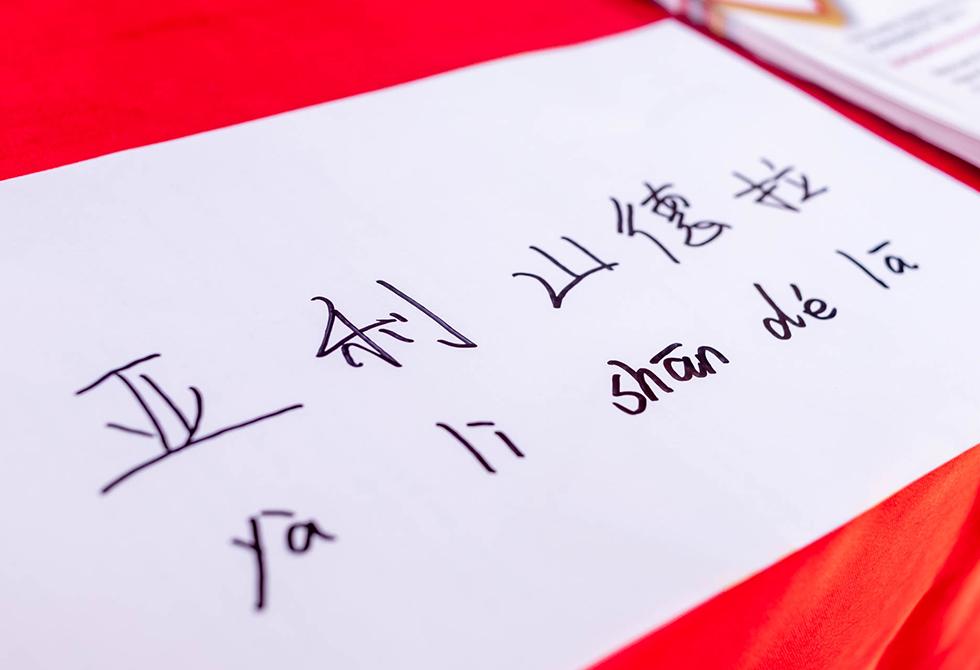 亚 利 山 德 拉
yà lì shān dé lā